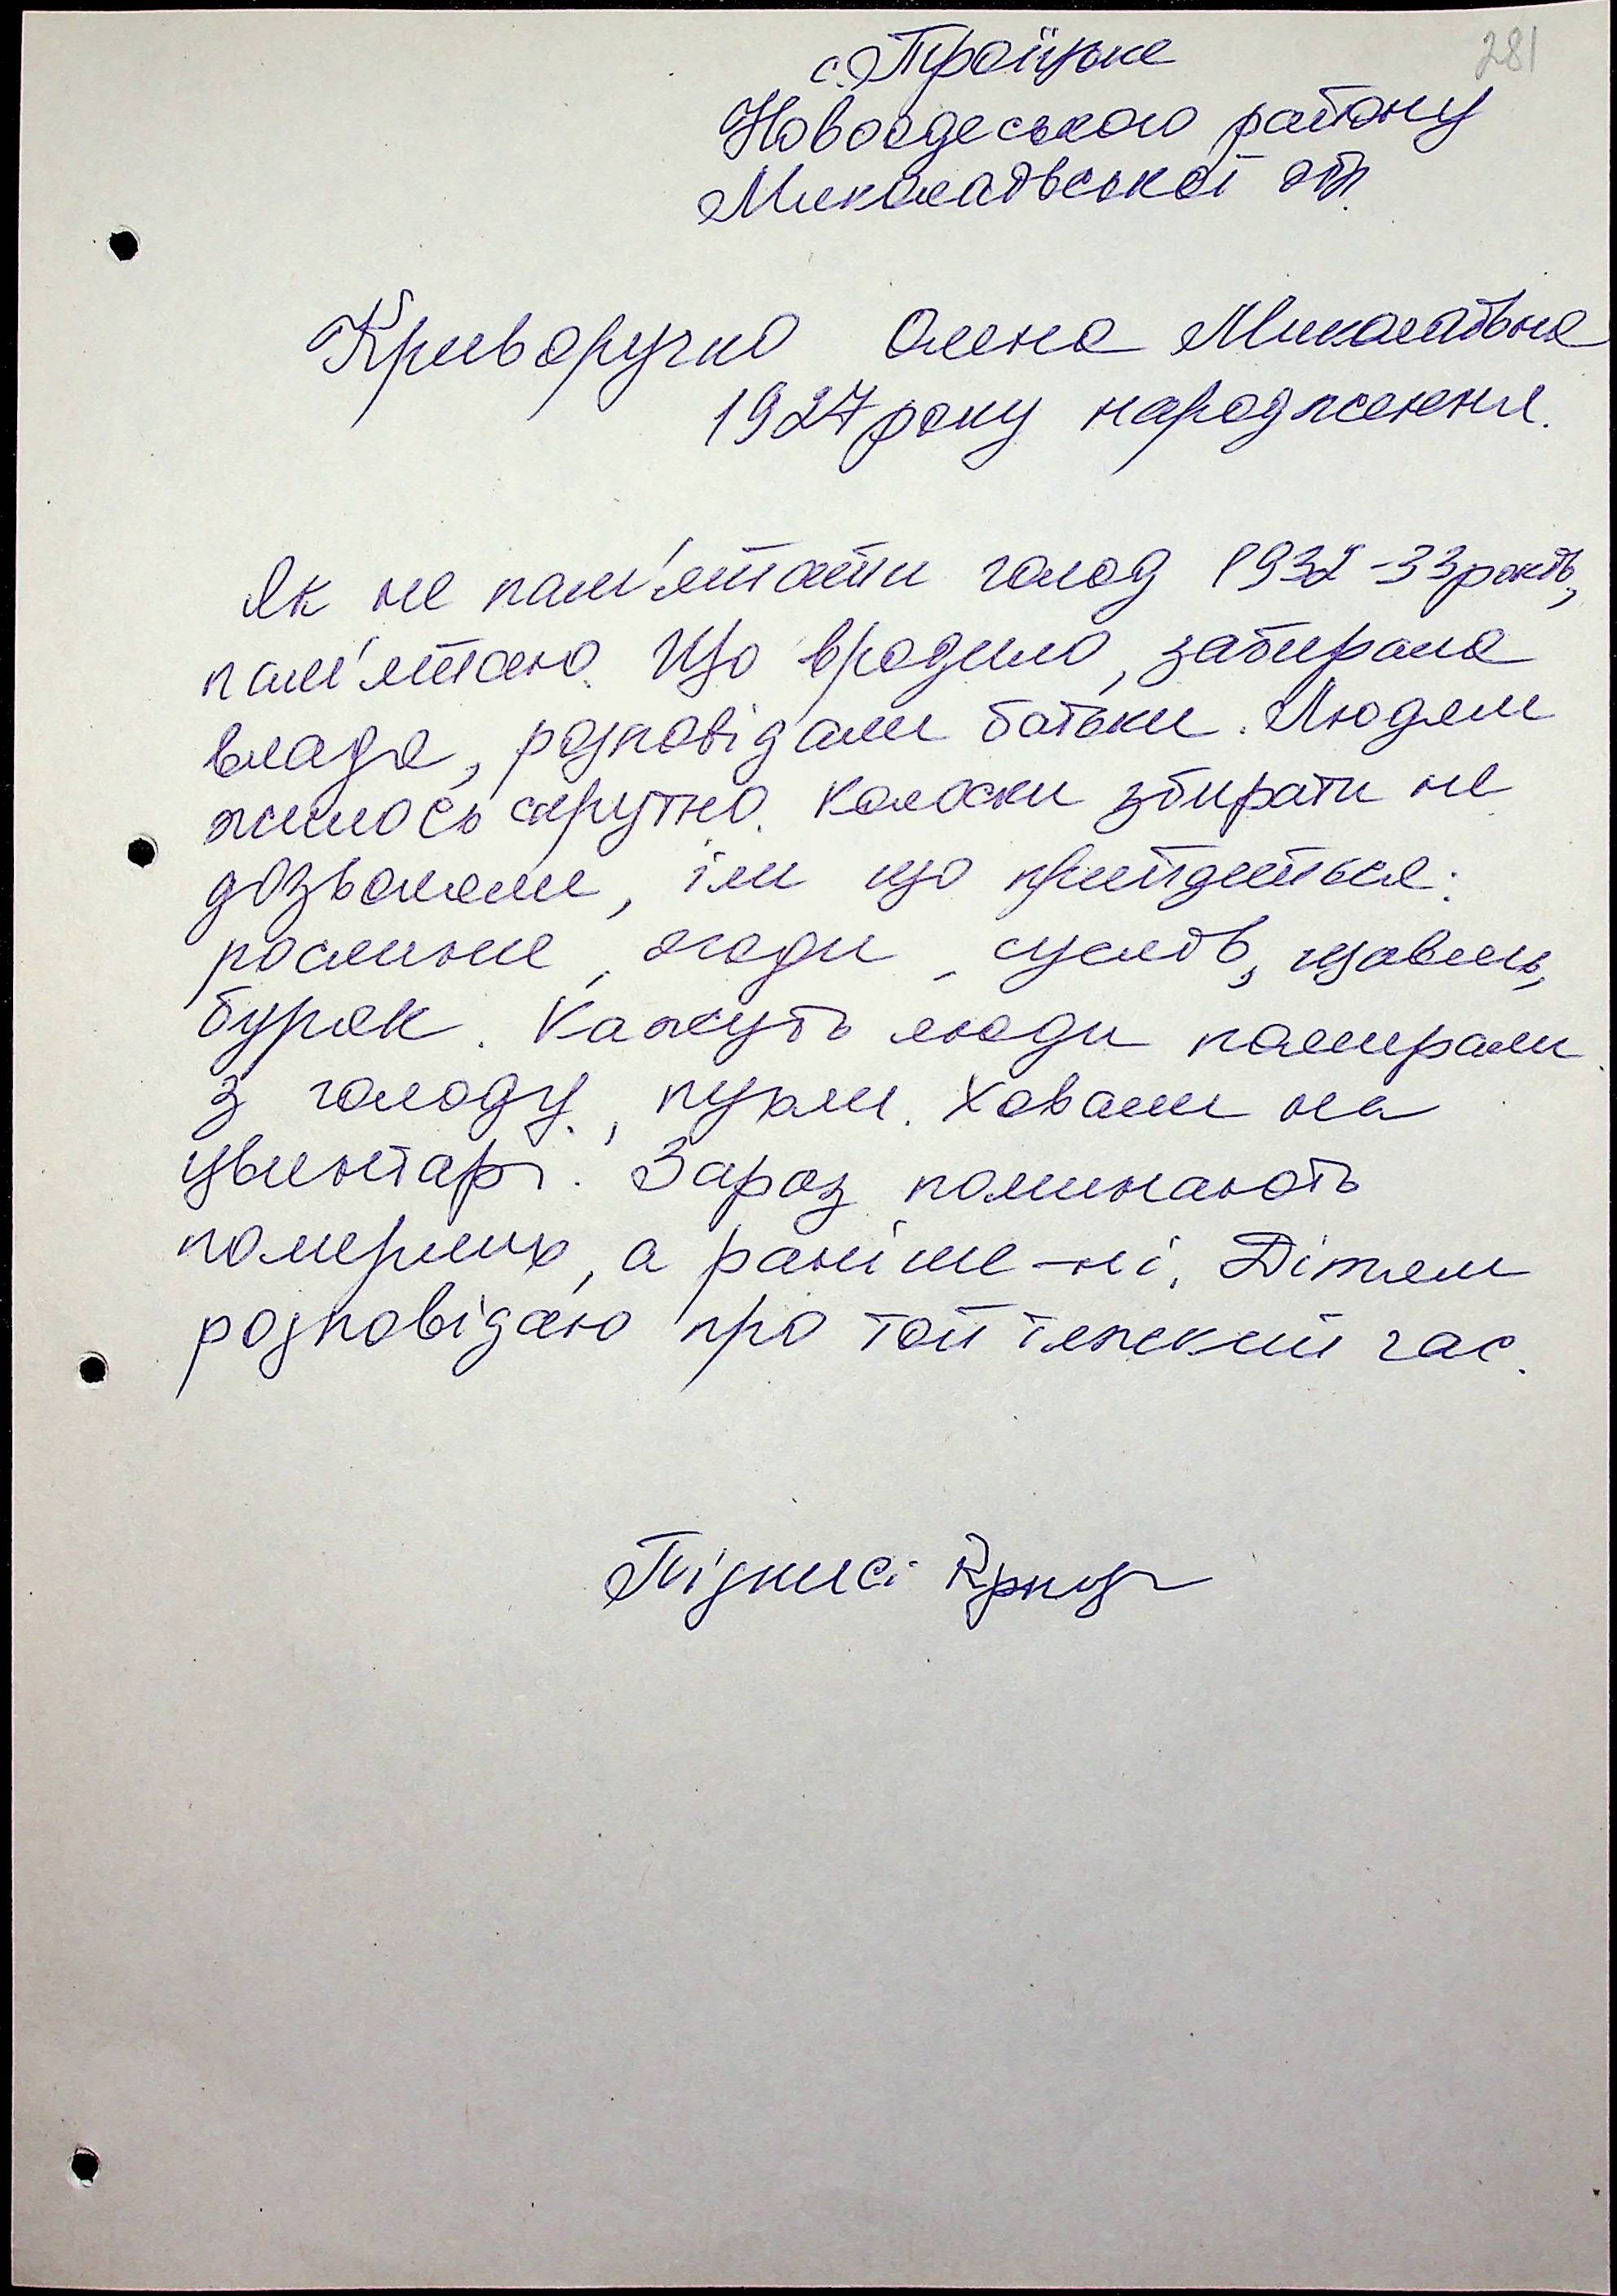 281
с. Троїцьке
Новоодеського району
Миколаївської обл.
Криворучко Олена Миколаївна
1927 року народження.
Як не пам'ятати голод 1932-33 років,
пам'ятаю. Що вродило, забирала
влада, розповідали батьки. Людям
жилось скрутно. Колоски збирати не
дозволяли, їли що прийдеться:
рослини, ягоди, суслів, щавель,
буряк. Кажуть люди помирали
з голоду, пухли. Ховали на
цвинтарі. Зараз поминають
померлих, а раніше - ні. Дітям
розповідаю про той тяжкий час.
Підписі